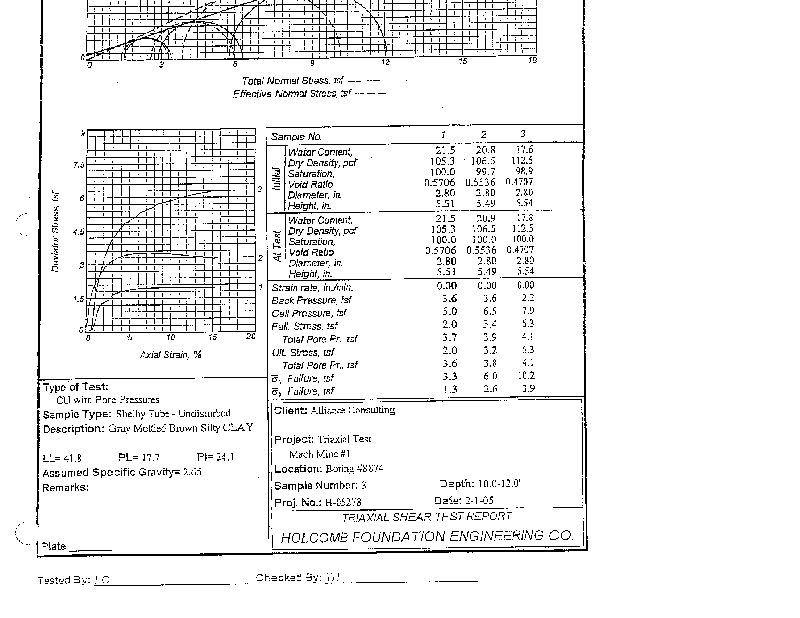 0 3 6 9 12 15 18
Total Normal Stress, tsf
Effective Normal Stress, tsf
Deviator Stress, tsf
9
7.5
6
4.5
3
1.5
0
0 5 10 15 20
3
2
1
Axial Strain, %
Sample No. 1 2 3
Initial
Water Content, 21.5 20.8 17.6
Dry Density, pcf 105.3 106.5 112.5
Saturation, 100.0 99.7 98.9
Void Ratio 0.5706 0.5536 0.4707
Diameter, in. 2.80 2.80 2.80
Height, in. 5.51 5.49 5.54
At Test
Water Content, 21.5 20.9 17.8
Dry Density, pcf 105.3 106.5 112.5
Saturation, 100.0 100.0 100.0
Void Ratio 0.5706 0.5536 0.4707
Diameter, in. 2.80 2.80 2.80
Height, in. 5.51 5.49 5.54
Strain rate, in./min. 0.00 0.00 0.00
Back Pressure, tsf 3.6 3.6 2.2
Cell Pressure, tsf 5.0 6.5 7.9
Fail. Stress, tsf 2.0 3.4 6.3
Total Pore Pr., tsf 3.7 3.9 4.1
Ult. Stress, tsf 2.0 3.2 6.3
Total Pore Pr., tsf 3.6 3.8 4.1
σ̄₁ Failure, tsf 3.3 6.0 10.2
σ̄₃ Failure, tsf 1.3 2.6 3.9
Type of Test:
CU with Pore Pressures
Sample Type: Shelby Tube - Undisturbed
Description: Gray Mottled Brown Silty CLAY
LL= 41.8 PL= 17.7 PI= 24.1
Assumed Specific Gravity= 2.65
Remarks:
Plate
Client: Alliance Consulting
Project: Triaxial Test
Mach Mine #1
Location: Boring #8874
Sample Number: 3 Depth: 10.0-12.0'
Proj. No.: H-05278 Date: 2-1-05
TRIAXIAL SHEAR TEST REPORT
HOLCOMB FOUNDATION ENGINEERING CO.
Tested By: Checked By: